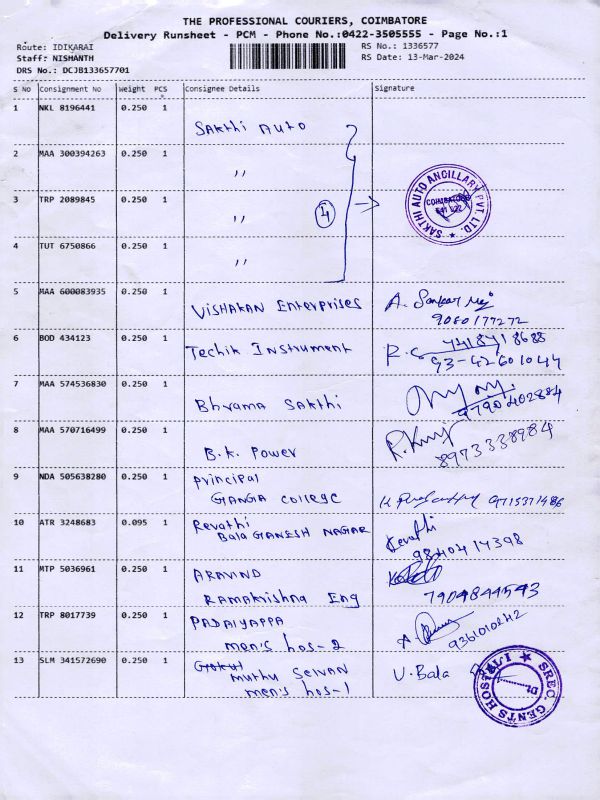 THE PROFESSIONAL COURIERS, COIMBATORE
Delivery Runsheet - PCM - Phone No.:0422-3505555 - Page No.:1
Route: IDIKARAI RS No.: 1336577
Staff: NISHANTH RS Date: 13-Mar-2024
DRS No.: DCJB133657701
S No Consignment No Weight PCS Consignee Details Signature
1 NKL 8196441 0.250 1 Sakthi Auto
2 MAA 300394263 0.250 1 ,,
3 TRP 2089845 0.250 1 ,, 4
4 TUT 6750866 0.250 1 ,,
SAKTHI AUTO ANCILLARY PVT. LTD.
COIMBATORE
5 MAA 600083935 0.250 1 Vishakan Enterprises A.
9080177272
6 BOD 434123 0.250 1 Techik Instrument
93-42601044
7 MAA 574536830 0.250 1 Bhrama Sakthi
9790402884
8 MAA 570716499 0.250 1 B.K. Power
8973338984
9 NDA 505638280 0.250 1 Principal
GANGA College 9715371486
10 ATR 3248683 0.095 1 Revathi Revathi
Bala GANESH NAGAR 9840417398
11 MTP 5036961 0.250 1 ARAVIND
Ramakrishna Eng 7904844543
12 TRP 8017739 0.250 1 PADAIYAPPA
men's hos-2 9361010242
13 SLM 341572690 0.250 1 Gokul U. Bala
muthu Selvan
men's hos-1
SREC. GENTS HOSTEL I